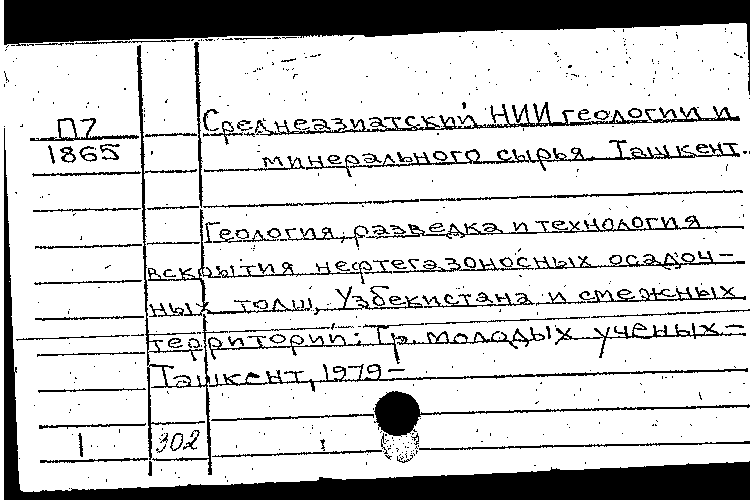 П7 Среднеазиатский НИИ геологии и
1865 минерального сырья. Ташкент.
Геология, разведка и технология
вскрытия нефтегазоносных осадоч-
ных толщ, Узбекистана и смежных
территорий: Тр. молодых ученых.-
Ташкент, 1979-
1 302